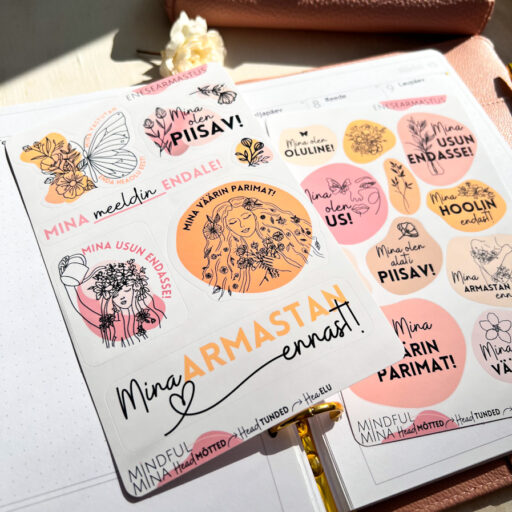 ENESEARMASTUS
Mina
olen
PIISAV!
MINA meeldin ENDALE!
MINA VÄÄRIN PARIMAT!
MINA USUN ENDASSE!
Mina ARMASTAN
ennast!
MINDFUL
MINA
Head MÕTTED → Head TUNDED → Hea ELU
8 Reede
9 Laupäev
ENESEARMASTUS
Mina olen
OLULINE!
Mina
USUN
ENDASSE!
olen
US!
Mina
HOOLIN
endast!
Mina
olen
alati
PIISAV!
Mina
ARMASTAN
Mina
PARIMAT!
Mina
MINDFUL
MINA
Head MÕTTED → Head TUNDED → Hea ELU